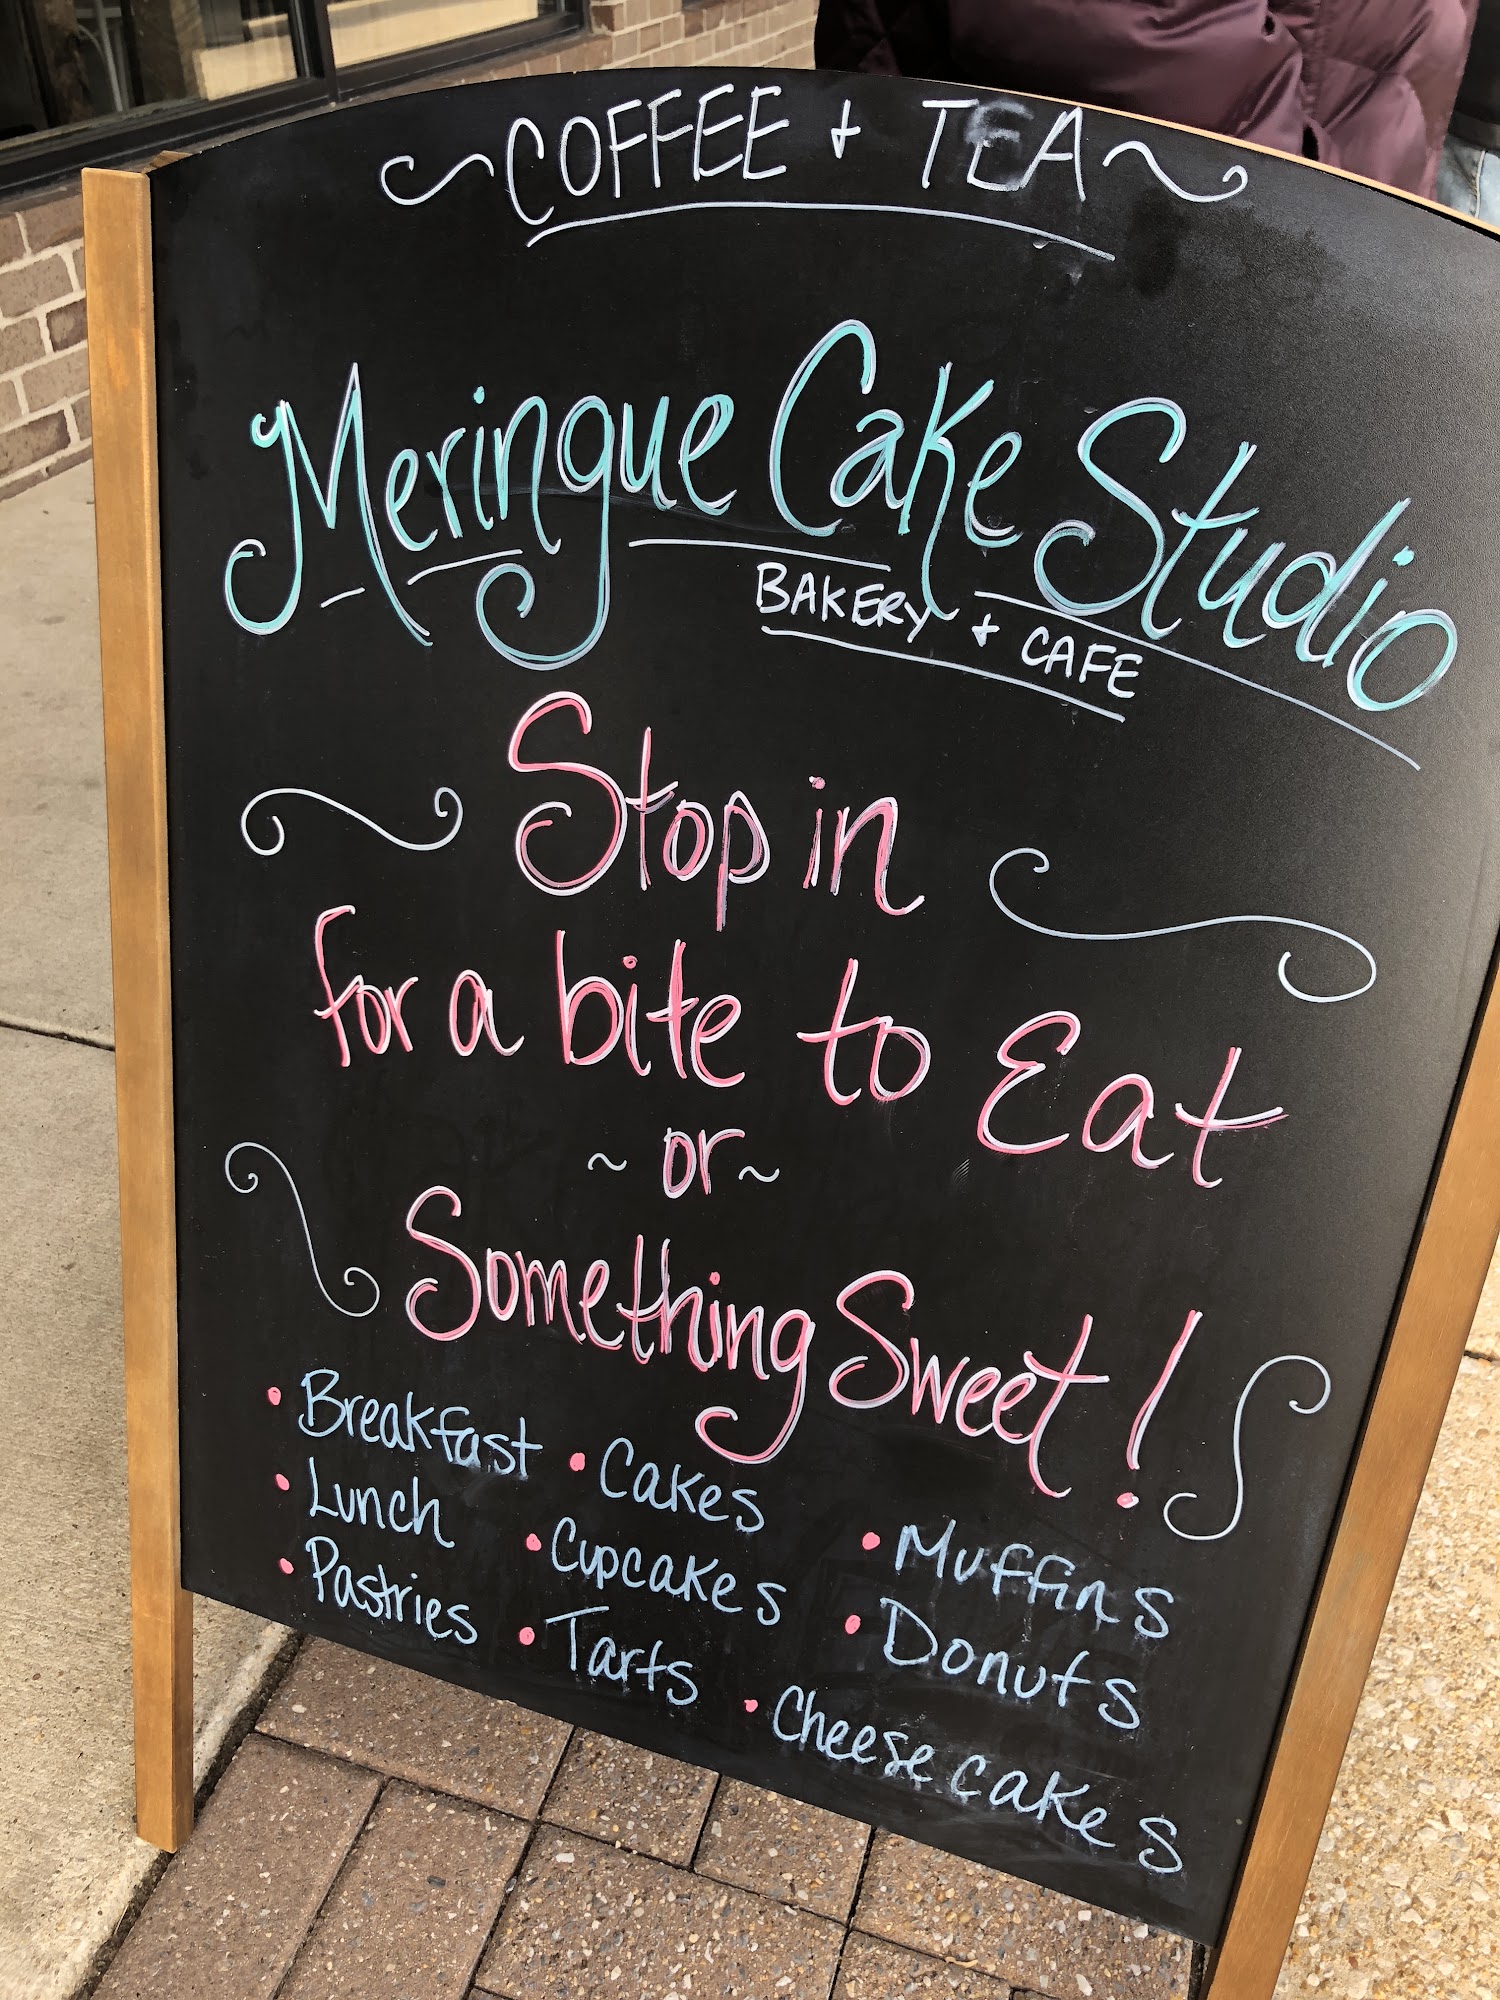 COFFEE + TEA
Meringue Cake Studio
BAKERY + CAFE
Stop in
for a bite to Eat
~ or ~
Something Sweet!
• Breakfast • Cakes • Muffins
• Lunch • Cupcakes • Donuts
• Pastries • Tarts • Cheesecakes